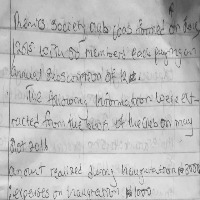 Men's Society club was formed on Jan,
1205 with 50 members each paying an
annual subscription of 12
The following information were ext-
racted from the of the club on may
31st 2011
amount realized during inauguration 3000
expenses on inauguration 1000